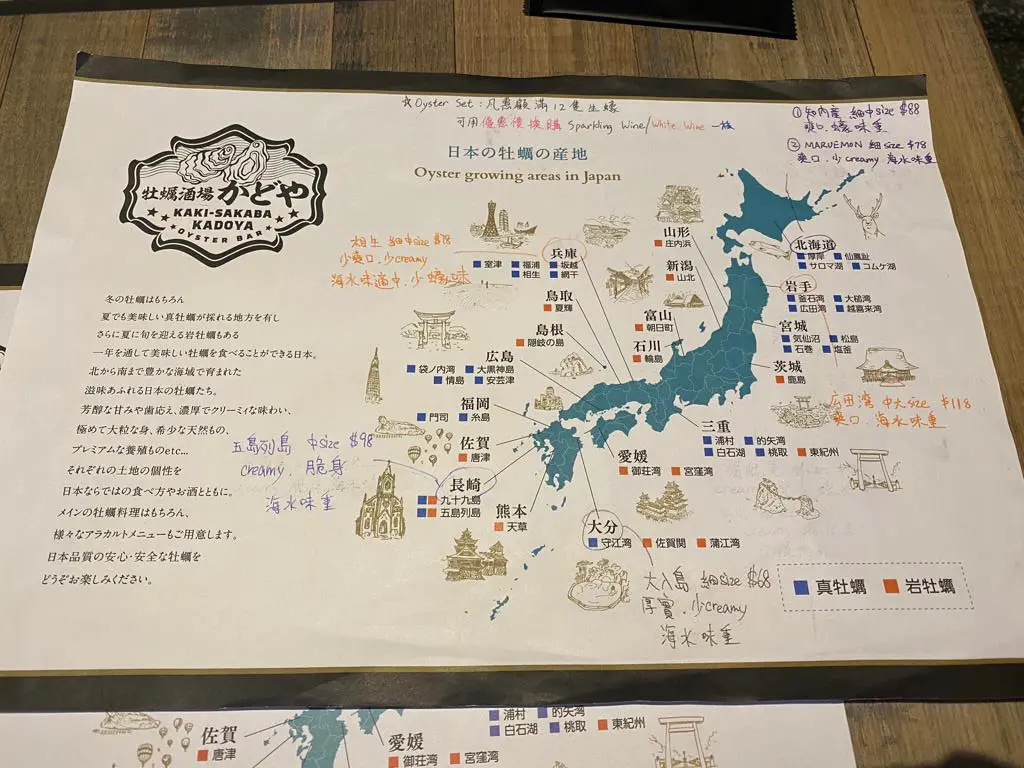 ☆Oyster Set：凡惠顧滿12隻生蠔
可用優惠價換購 Sparkling Wine/White Wine 一枝
① 知内産 細中size $88
爽口.蠔味重
② MARUEMON 細size $78
爽口.少creamy 海水味重
日本の牡蠣の産地
Oyster growing areas in Japan
牡蠣酒場 かどや
KAKI-SAKABA
KADOYA
OYSTER BAR
冬の牡蠣はもちろん
夏でも美味しい真牡蠣が採れる地方を有し
さらに夏に旬を迎える岩牡蠣もある
一年を通して美味しい牡蠣を食べることができる日本。
北から南まで豊かな海域で育まれた
滋味あふれる日本の牡蠣たち。
芳醇な甘みや歯応え、濃厚でクリーミィな味わい、
極めて大粒な身、希少な天然もの、
プレミアムな養殖ものetc...
それぞれの土地の個性を
日本ならではの食べ方やお酒とともに。
メインの牡蠣料理はもちろん、
様々なアラカルトメニューもご用意します。
日本品質の安心・安全な牡蠣を
どうぞお楽しみください。
相生 細中size
少爽口.少creamy
海水味適中.少蠔味
兵庫
室津 福浦 坂越
相生 網干
鳥取
夏輝
島根
隠岐の島
広島
袋ノ内湾 大黒神島
情島 安芸津
福岡
門司 糸島
佐賀
唐津
五島列島 中size $98
creamy. 脆身
海水味重
長崎
九十九島
五島列島
熊本
天草
山形
庄内浜
新潟
山北
富山
朝日町
石川
輪島
北海道
厚岸 仙鳳趾
サロマ湖 コムケ湖
岩手
釜石湾 大槌湾
広田湾 越喜来湾
宮城
気仙沼 松島
石巻 塩釜
茨城
鹿島
広田湾 中大size $118
爽口.海水味重
三重
浦村 的矢湾
白石湖 桃取 東紀州
愛媛
御荘湾 宮窪湾
大分
守江湾 佐賀関 蒲江湾
大入島 細size $68
厚實.少creamy
海水味重
真牡蠣 岩牡蠣
佐賀
唐津
愛媛
御荘湾 宮窪湾
浦村 的矢湾
白石湖 桃取 東紀州